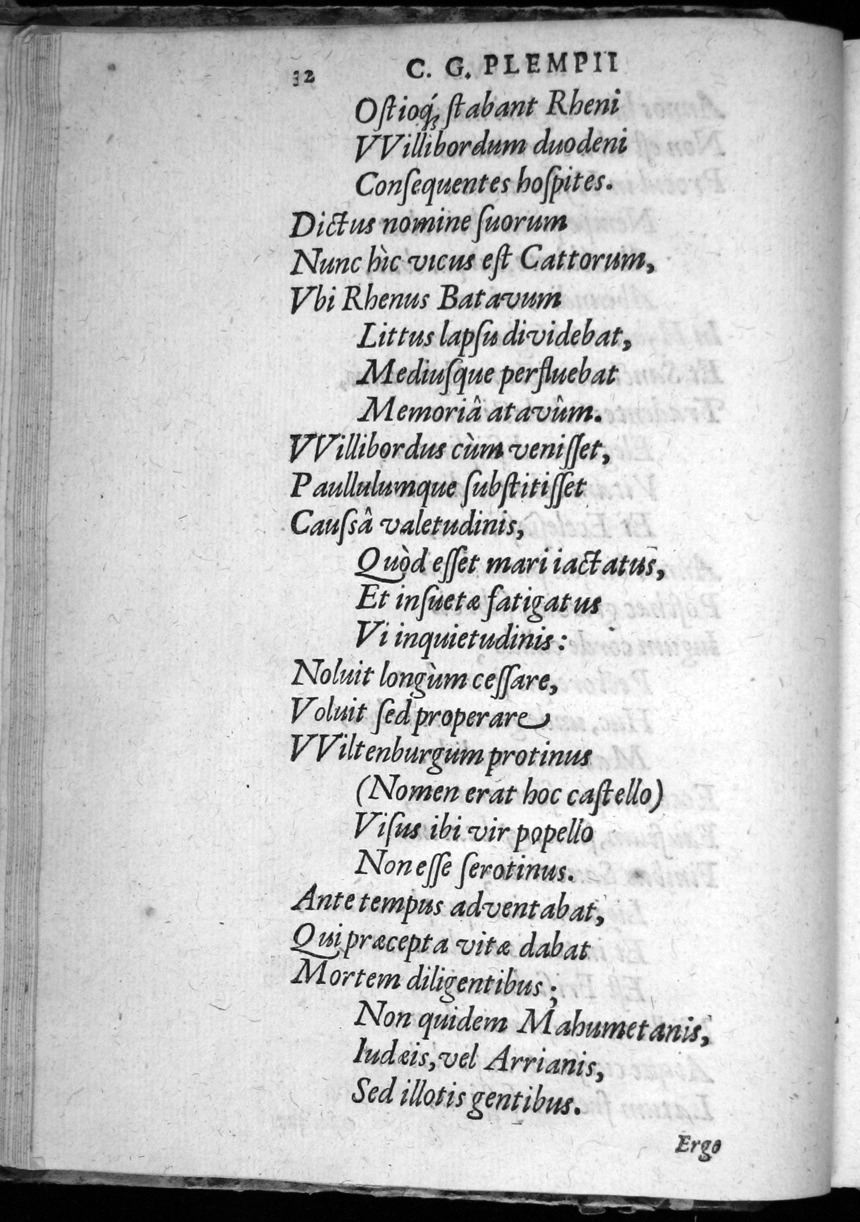 32 C. G. PLEMPII
Ostioq́; stabant Rheni
VVillibordum duodeni
Consequentes hospites.
Dictus nomine suorum
Nunc hìc vicus est Cattorum,
Vbi Rhenus Batavum
Littus lapsu dividebat,
Mediusque perfluebat
Memoriâ atavûm.
VVillibordus cùm venisset,
Paullulumque substitisset
Caussâ valetudinis,
Quòd esset mari iactatus,
Et insuetæ fatigatus
Vi inquietudinis:
Noluit longùm cessare,
Voluit sed properare
VViltenburgum protinus
(Nomen erat hoc castello)
Visus ibi vir popello
Non esse serotinus.
Ante tempus adventabat,
Qui præcepta vitæ dabat
Mortem diligentibus;
Non quidem Mahumetanis,
Iudæis, vel Arrianis,
Sed illotis gentibus.
Ergo